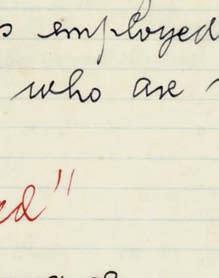 employed
who are
ed"